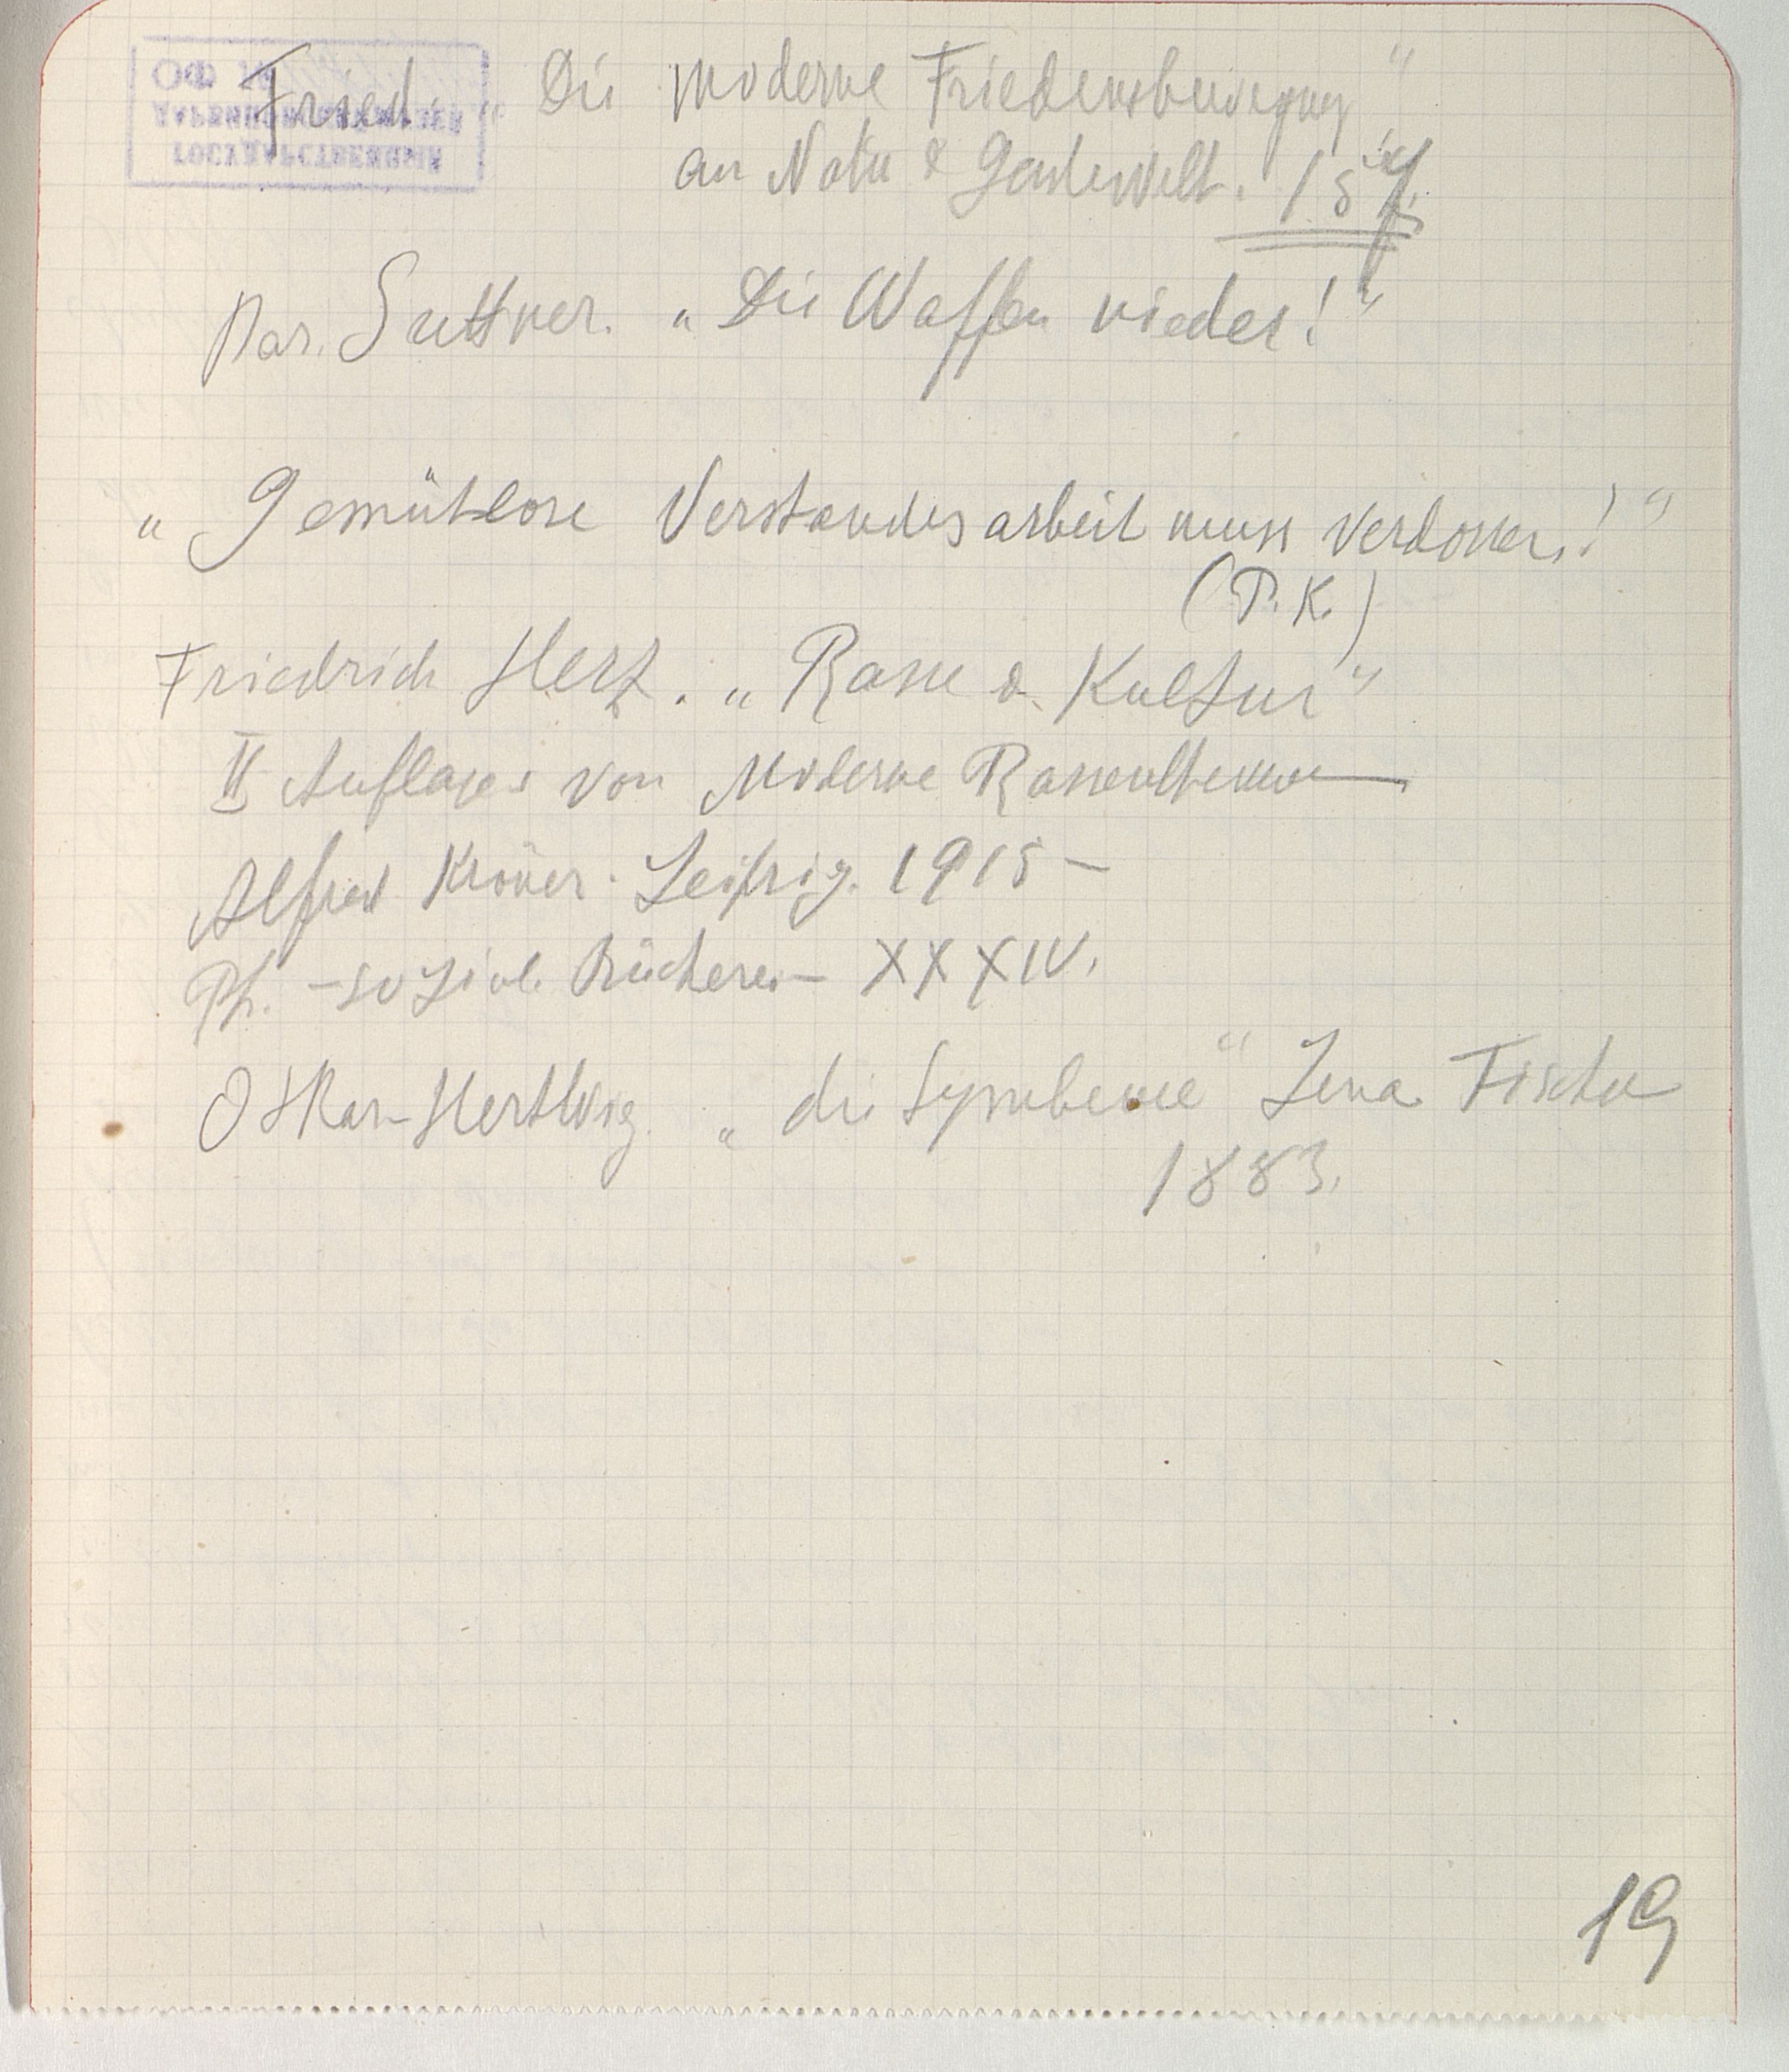 Fried. „Die moderne Friedensbewegung“
aus Natur & Geisteswelt. 157.
Bar. Suttner. „Die Waffen nieder!“
„Gemühtlose Verstandesarbeit muss verdorren!“
(P. K.)
Friedrich Herz. „Rasse u. Kultur“
II Auflage von Moderne Rassentheorien
Alfred Kröner. Leipzig. 1915 –
Ph. – soziol. Bücherei – XXXIV.
Oskar Hertwig. „die Symbiose“ Jena Fischer
1883.
19